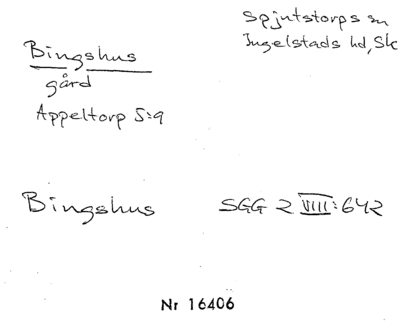 Bingshus
gård
Äppeltorp 5:9
Spjutstorps sn
Ingelstads hd, Sk
Bingshus
SGG 2 VIII: 642
Nr 16406